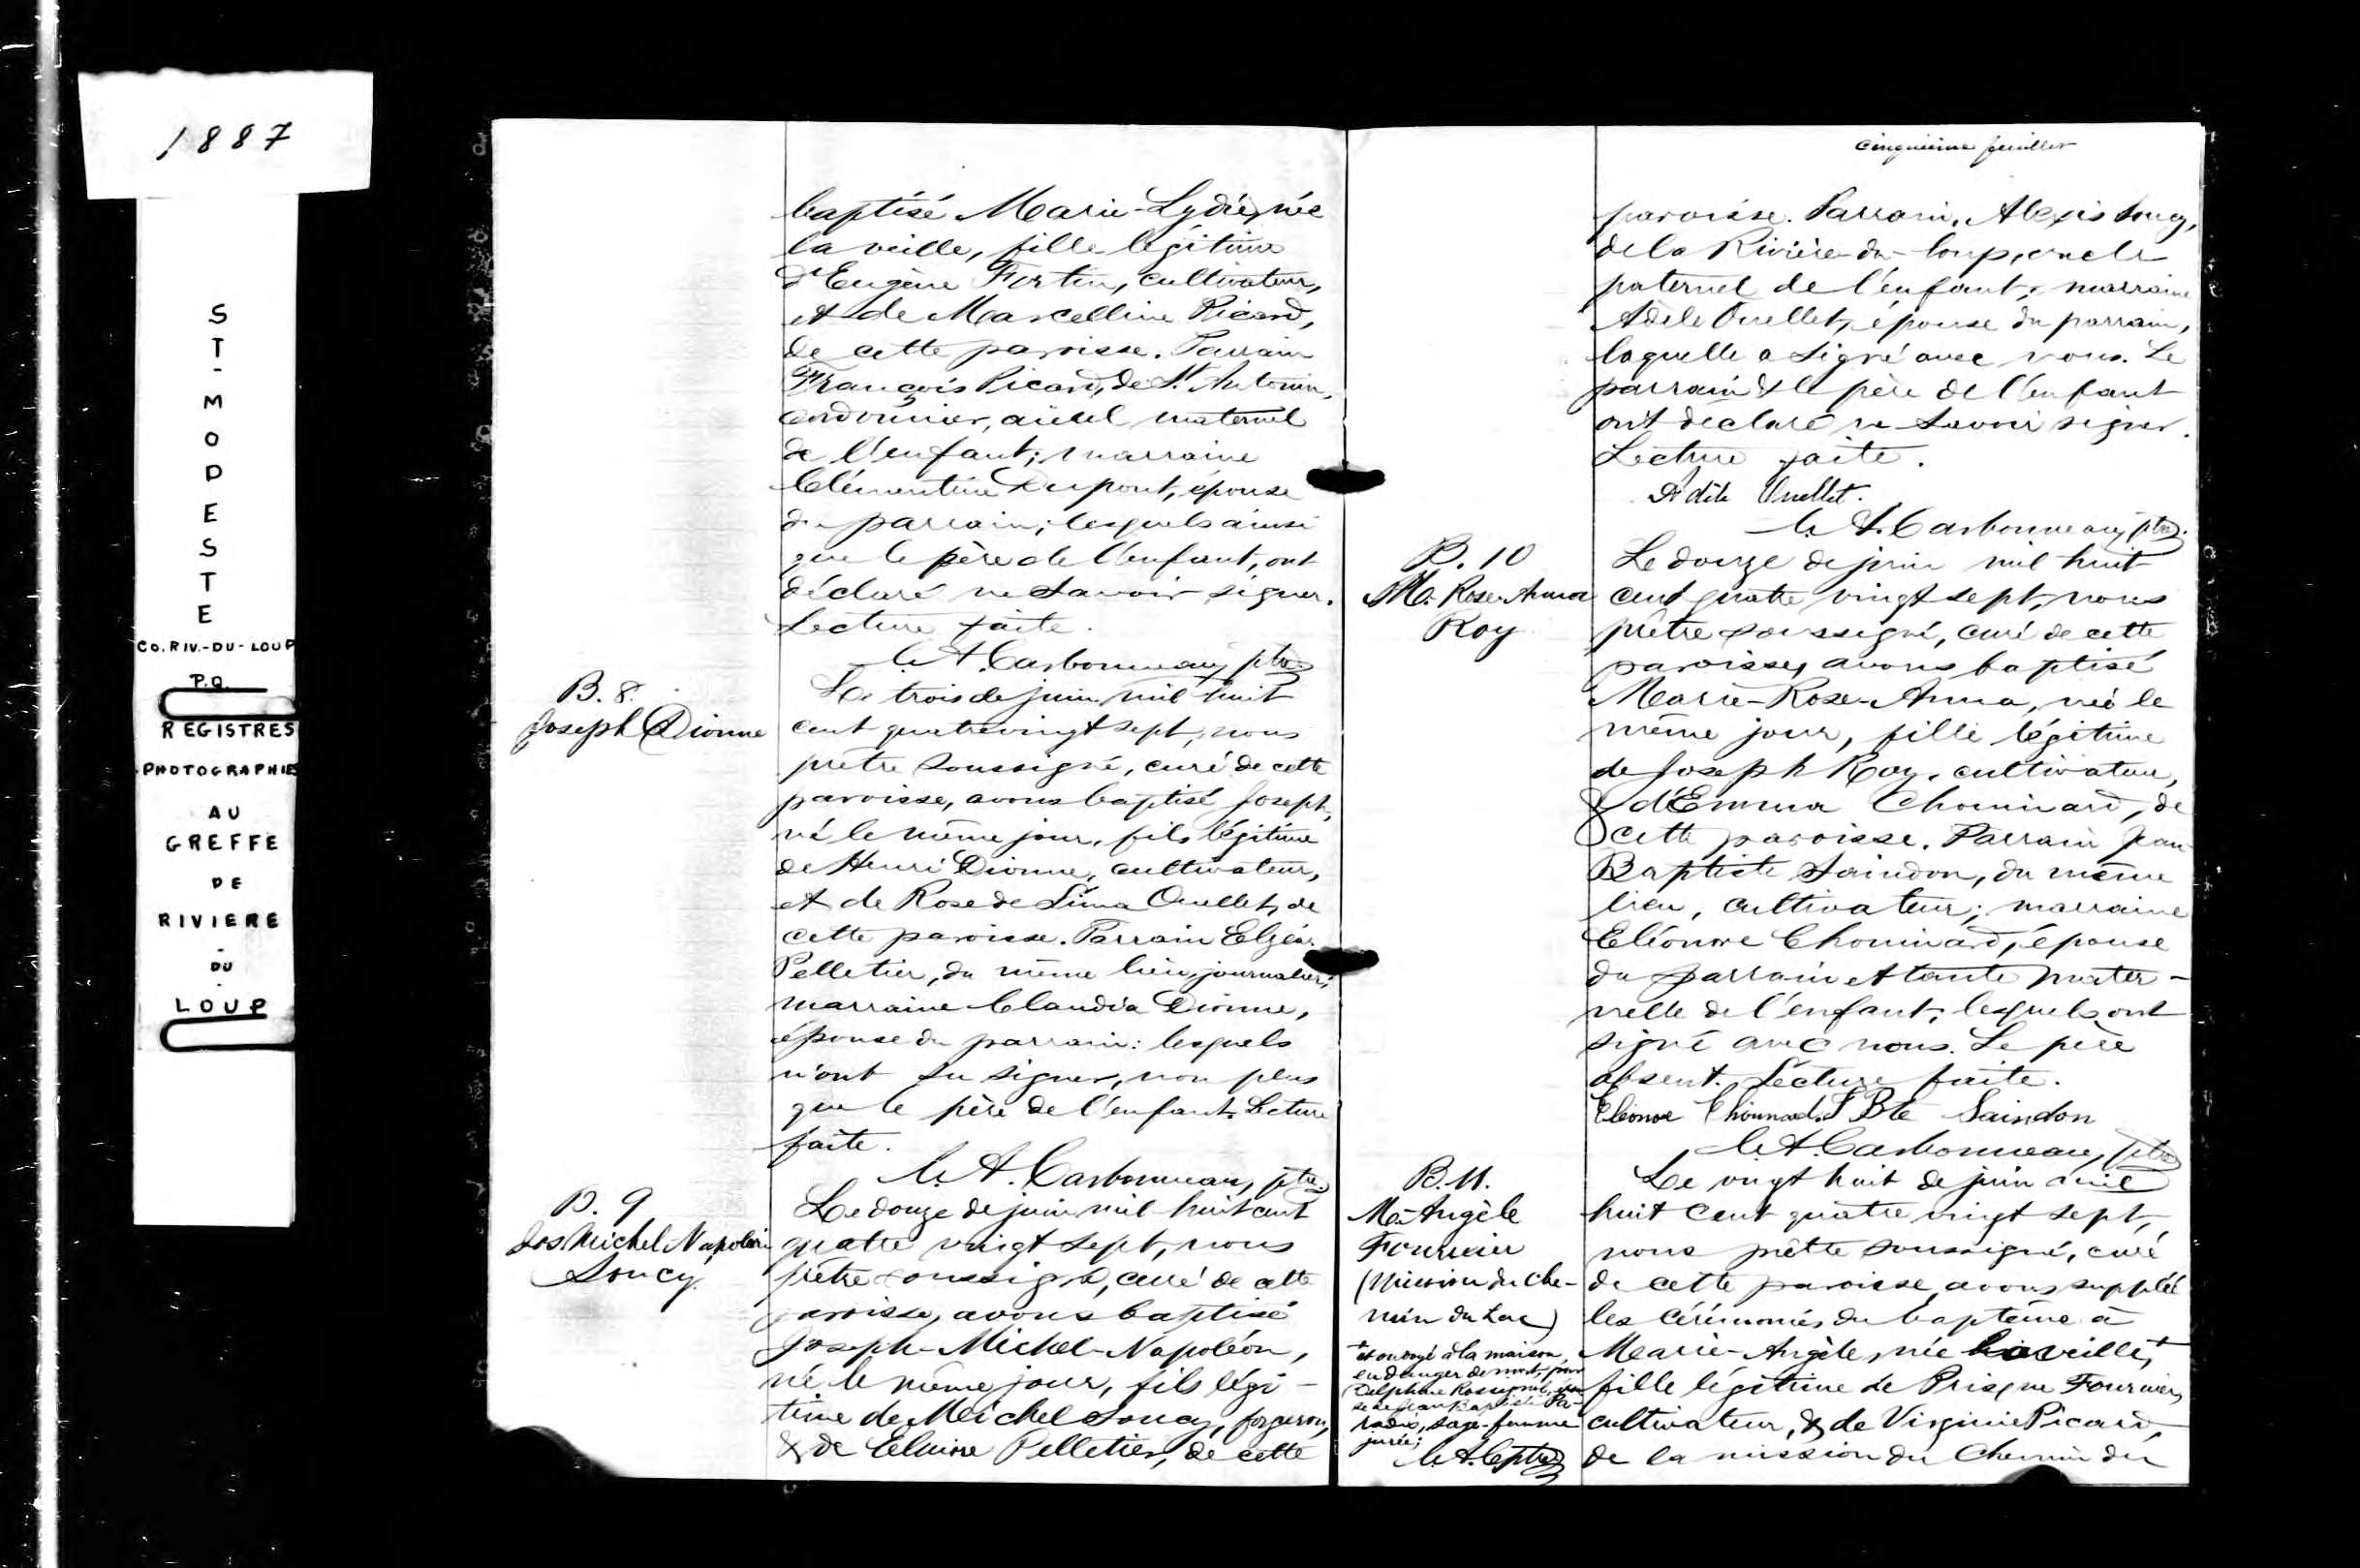 1887
ST-MODESTE
CO. RIV.-DU-LOUP
P.Q.
REGISTRES
PHOTOGRAPHIES
AU
GREFFE
DE
RIVIERE
-
DU
-
LOUP
baptisé Marie-Lydie, née
la veille, fille légitime
d'Eugène Fortin, cultivateur,
et de Marcelline Picard,
de cette paroisse. Parrain
François Picard, de St. Antonin,
cordonnier, aïeul maternel
de l'enfant; marraine
Clémentine Dupont, épouse
du parrain; lesquels ainsi
que le père de l'enfant, ont
déclaré ne savoir signer.
Lecture faite.
C. A. Carbonneau, ptre
B. 8.
Joseph Dionne
Le trois de juin mil huit
cent quatrevingt sept, nous
prêtre soussigné, curé de cette
paroisse, avons baptisé Joseph,
né le même jour, fils légitime
de Henri Dionne, cultivateur,
et de Rose de Lima Ouellet, de
cette paroisse. Parrain Elzéar
Pelletier, du même lieu, journalier;
marraine Claudia Dionne,
épouse du parrain: lesquels
n'ont su signer, non plus
que le père de l'enfant. Lecture
faite.
C. A. Carbonneau, ptre
B. 9
Jos Michel Napoléon
Soucy
Le douze de juin mil huit cent
quatre vingt sept, nous
prêtre soussigné, curé de cette
paroisse, avons baptisé
Joseph-Michel-Napoléon,
né le même jour, fils légi-
time de Michel Soucy, forgeron,
& de Elmire Pelletier, de cette
cinquième feuillet
paroisse. Parrain, Alexis Soucy,
de la Rivière-du-loup, oncle
paternel de l'enfant; marraine
Adèle Ouellet, épouse du parrain,
laquelle a signé avec nous. Le
parrain & le père de l'enfant
ont déclaré ne savoir signer.
Lecture faite.
Adèle Ouellet.
C. A. Carbonneau, ptre.
B. 10
M. Rose-Anna
Roy
Le douze de juin mil huit
cent quatre vingt sept, nous
prêtre soussigné, curé de cette
paroisse, avons baptisé
Marie-Rose-Anna, née le
même jour, fille légitime
de Joseph Roy, cultivateur,
& d'Emma Chouinard, de
cette paroisse. Parrain Jean
Baptiste Saindon, du même
lieu, cultivateur; marraine
Eléonore Chouinard, épouse
du parrain et tante mater-
nelle de l'enfant; lesquels ont
signé avec nous. Le père
absent. Lecture faite.
Eléonore Chouinard. J Bte Saindon
C. A. Carbonneau, ptre
B. 11.
M. Angèle
Fournier
(Mission du Che-
min du Lac)
Le vingt huit de juin mil
huit cent quatre vingt sept,
nous prêtre soussigné, curé
de cette paroisse, avons suppléé
les cérémonies du baptême à
Marie-Angèle, née la veille, +
fille légitime de Prisque Fournier,
cultivateur, & de Virginie Picard,
de la mission du Chemin du
+ et ondoyé à la maison,
en danger de mort, par
Delphine Rossignol,
se de Jean Baptiste Pa-
radis, sage-femme
jurée;
C. A. C. ptre